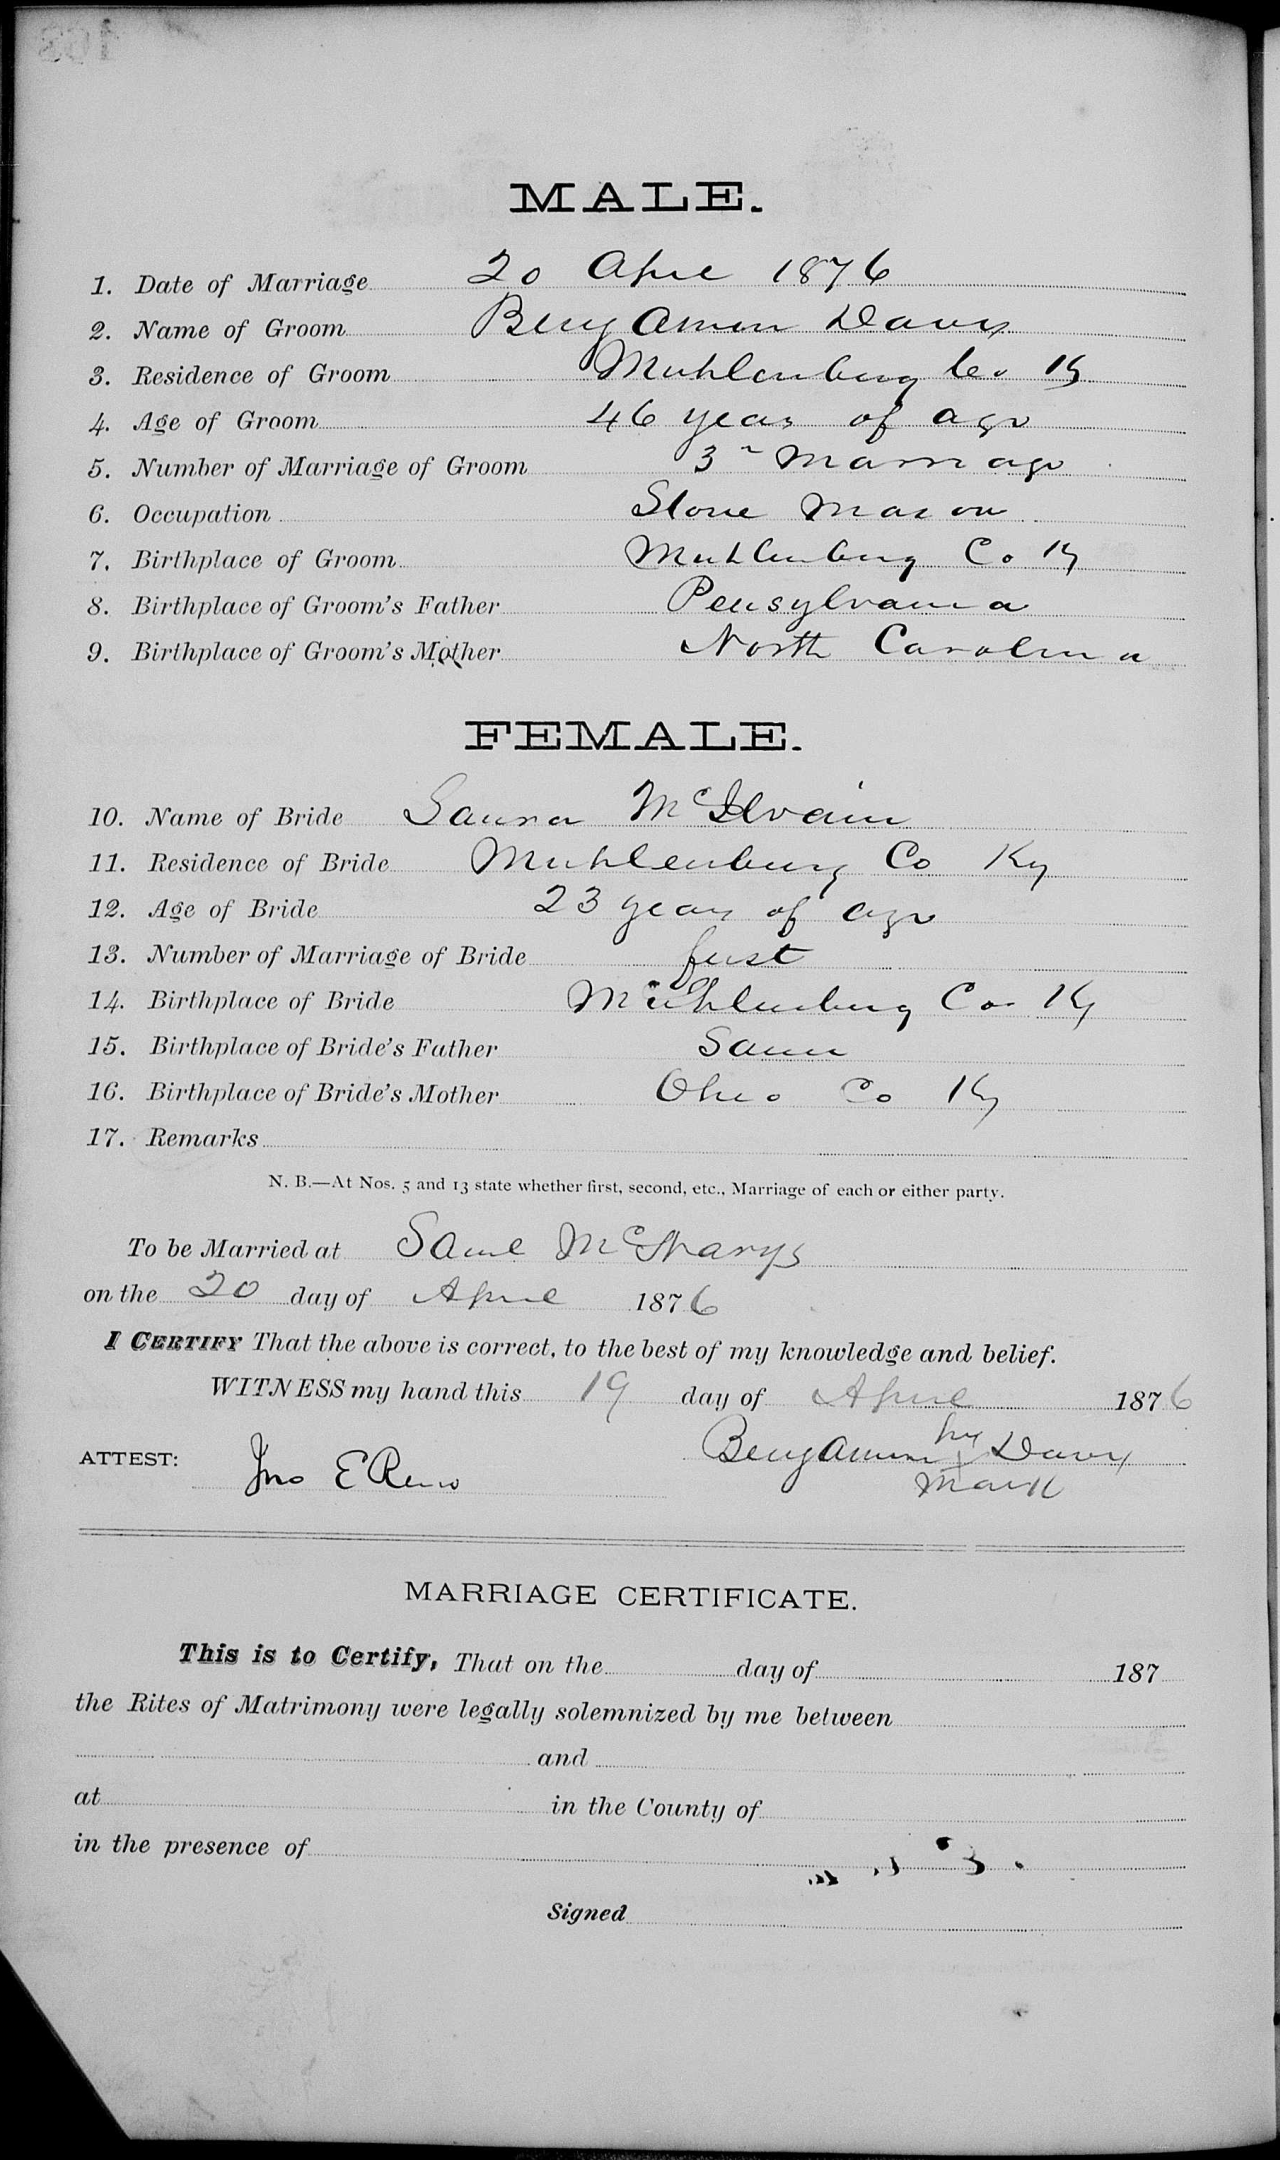 MALE.
1. Date of Marriage 20 April 1876
2. Name of Groom Benjamin Davis
3. Residence of Groom Muhlenburg Co Ky
4. Age of Groom 46 years of age
5. Number of Marriage of Groom 3 Marriage
6. Occupation Stone Mason
7. Birthplace of Groom Muhlenburg Co Ky
8. Birthplace of Groom's Father Pensylvania
9. Birthplace of Groom's Mother North Carolina
FEMALE.
10. Name of Bride Laura McIlvain
11. Residence of Bride Muhlenburg Co Ky
12. Age of Bride 23 years of age
13. Number of Marriage of Bride first
14. Birthplace of Bride Muhlenburg Co Ky
15. Birthplace of Bride's Father Same
16. Birthplace of Bride's Mother Ohio Co Ky
17. Remarks
N. B.—At Nos. 5 and 13 state whether first, second, etc., Marriage of each or either party.
To be Married at Saml
on the 20 day of April 1876
I CERTIFY That the above is correct, to the best of my knowledge and belief.
WITNESS my hand this 19 day of April 1876
his
ATTEST: Jno E Reno Benjamin X Davis
Mark
MARRIAGE CERTIFICATE.
This is to Certify, That on the day of 187
the Rites of Matrimony were legally solemnized by me between
and
at in the County of
in the presence of
Signed